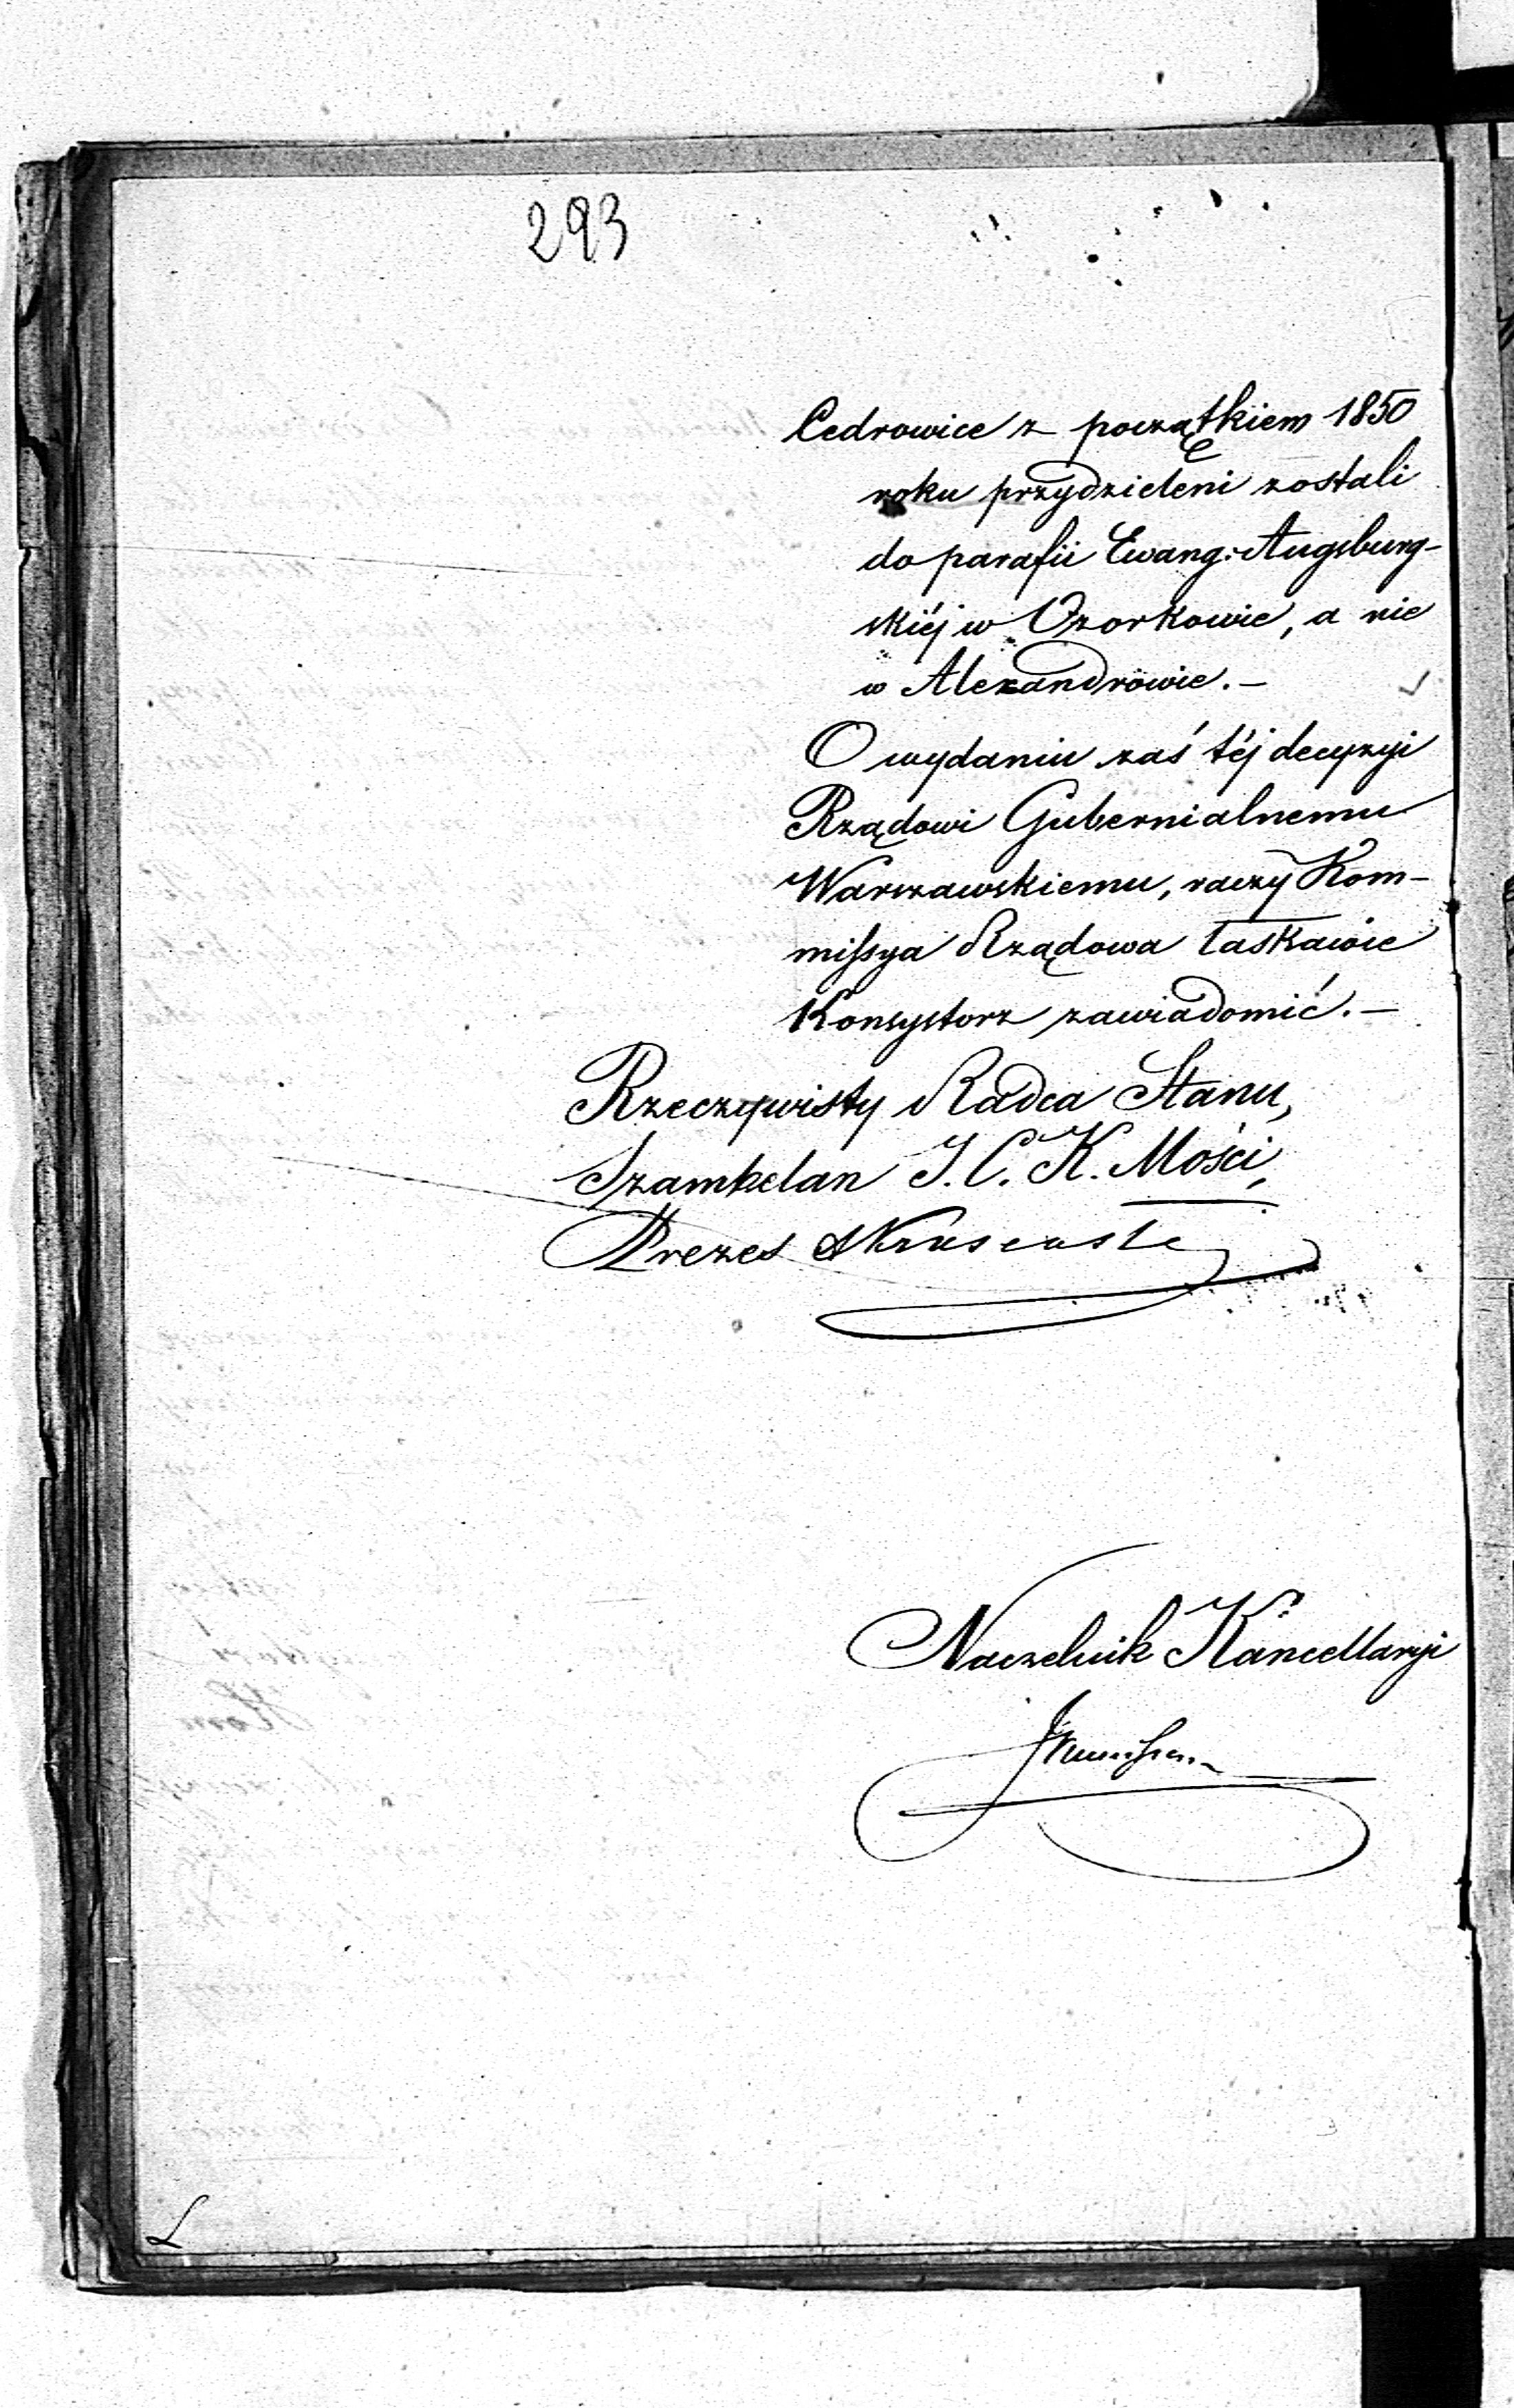 293
Cedrowice z początkiem 1850
roku przydzieleni zostali
do parafii Ewang: Augsburg-
skiéj w Ozorkowie, a nie
w Alexandrowie. —
O wydaniu zaś téj decyzyi
Rządowi Gubernialnemu
Warszawskiemu, raczy Kom-
missya Rządowa łaskawie
Konsystorz zawiadomić. —
Rzeczywisty Radca Stanu,
Szambelan J. C. K. Mości,
Prezes
Naczelnik Kancellaryi